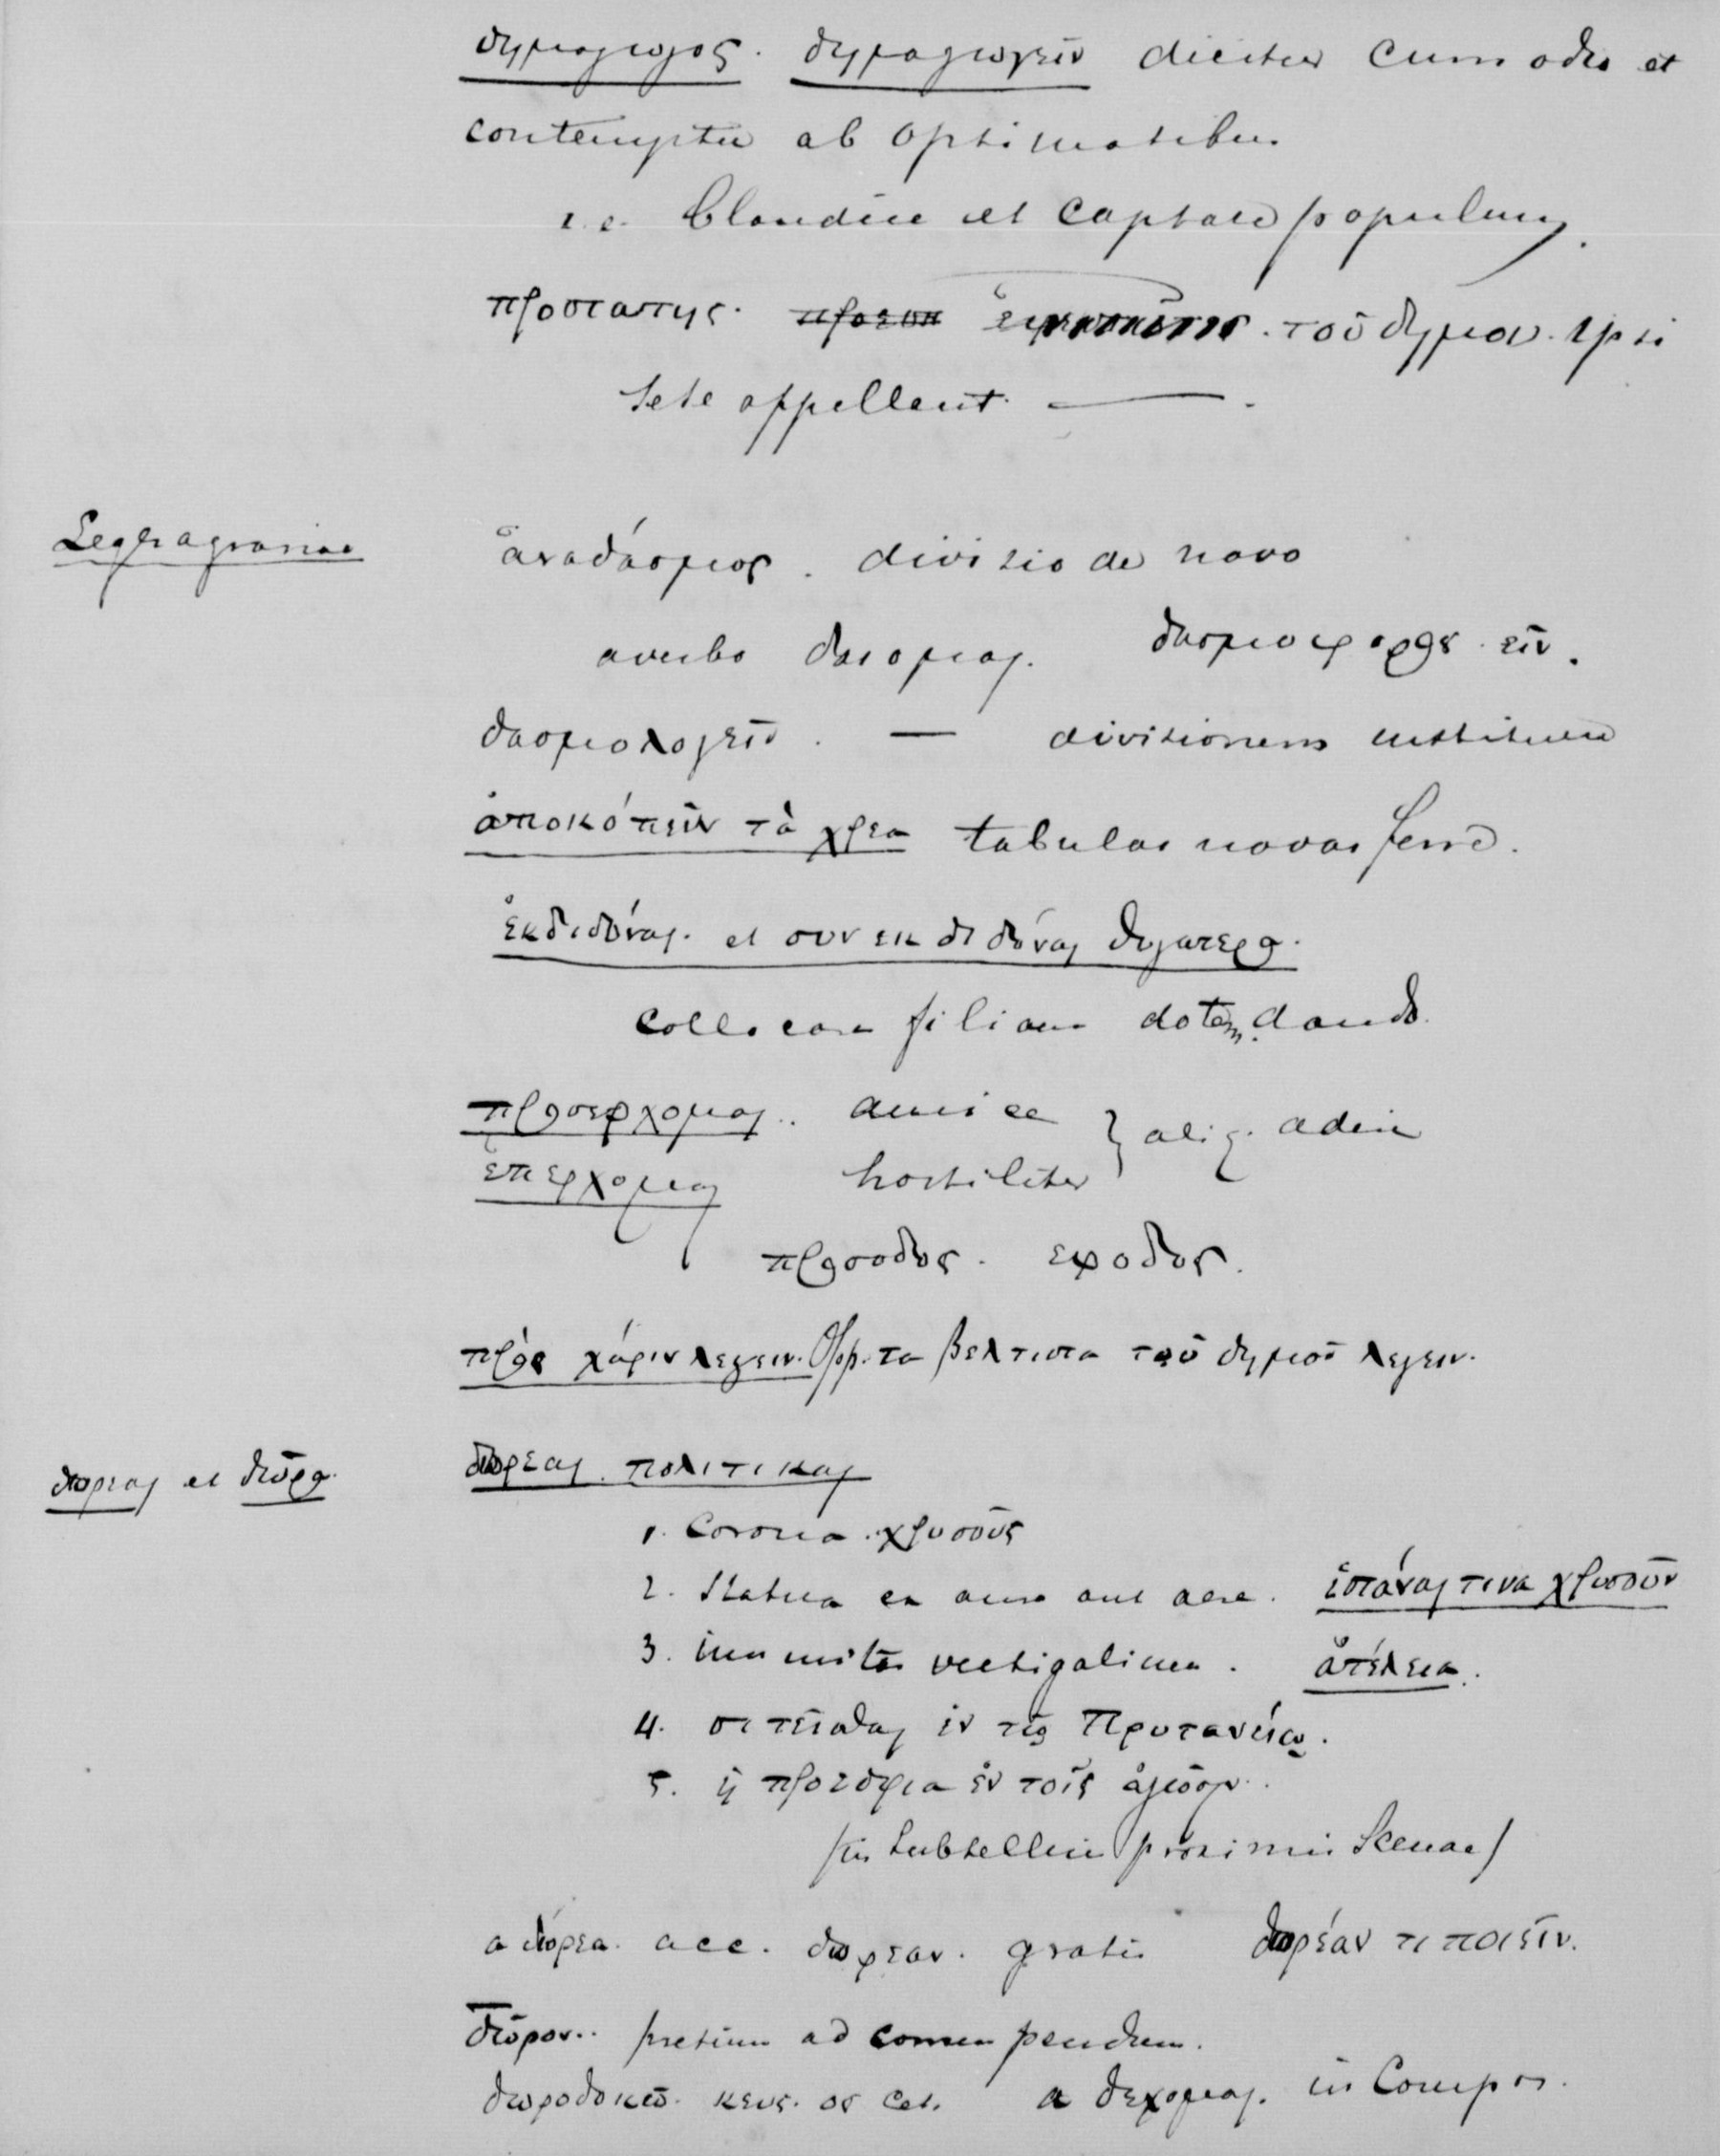 δημαγωγος. δημαγωγειν dicitur cum odio et
contemptu ab optimatibus
i.e. blandiri et captare populum.
προστατης. του δημου. ipsi
sese appellant. —
Leges agrariae
ἀναδάσμος. divisio de novo
a verbo δασομαι. δασμοφορος. ειν.
δασμολογειν. — divisionem instituere
ἀποκόπειν τὰ χρεα tabulas novas ferre.
ἐκδιδόναι. et συνεκδιδόναι θυγατερα.
collocare filiam dotem dando.
προσερχομαι.. amice } aliq. adire
ἐπερχομαι hostiliter
προσοδος. εφοδος.
πρὸς χάριν λεγειν. Opp. τα βελτιστα τοῦ δημοῦ λεγειν.
δωρεαι et δῶρα.
δωρεαι. πολιτικαι
1. Corona. χρυσοῦς
2. Statua ex auro aut aere. ἱστάναι τινα χρυσοῦν
3. immunitas vectigalium. ἀτέλεια.
4. σιτεῖσθαι ἐν τῷ Πρυτανείῳ.
5. ἡ προεδρια ἐν τοῖς ἀγῶσιν.
(in subselliis proximis Scenae)
a δώρεα. acc. δωρεαν. gratis δωρέαν τι ποιεῖν.
Δῶρον.. pretium ad corrumpendum.
δωροδοκῶ. κευς. ος cet. a δεχομαι. in Compos.